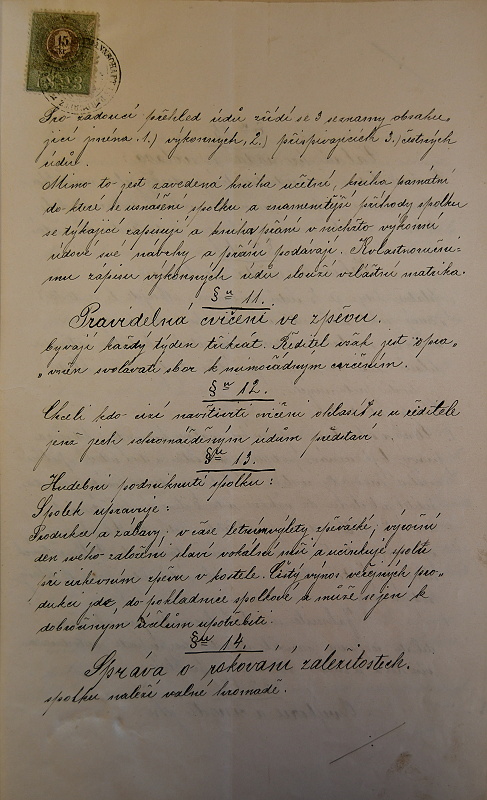 15
Pro žádoucí přehled údů zřídí se 3 seznamy obsahu-
jící jména 1.) výkonných, 2.) přispívajících 3.) čestných
údův.
Mimo to jest zavedena kniha účetní, kniha památní
do které se usnášení spolku a znamenitější příhody spolku
se týkající zapisují a kniha přání v nichžto výkonní
údové své návrhy a přání podávají. K vlastnoruční-
mu zápisu výkonných údů slouží zvláštní matrika.
§ 11.
Pravidelná cvičení ve zpěvu.
bývají každý týden třikrát. Ředitel však jest opra„
„vněn svolávati sbor k mimořádným cvičením.
§ 12.
Chceli kdo cizí navštíviti cvičení ohlásiž se u ředitele
jenž jej shromážděným údům představí.
§ 13.
Hudební podniknutí spolku:
Spolek upravuje:
Produkce a zábavy; v čase letním výlety zpěvácké; výroční
den svého založení slaví vokální mší a účinkuje spolu
při církevním zpěvu v kostele. Čistý výnos veřejných pro„
dukcí jde, do pokladnice spolkové a může se jen k
dobročinným účelům upotřebiti.
§ 14.
Správa o rokování záležitostech.
spolku náleží valné hromadě.